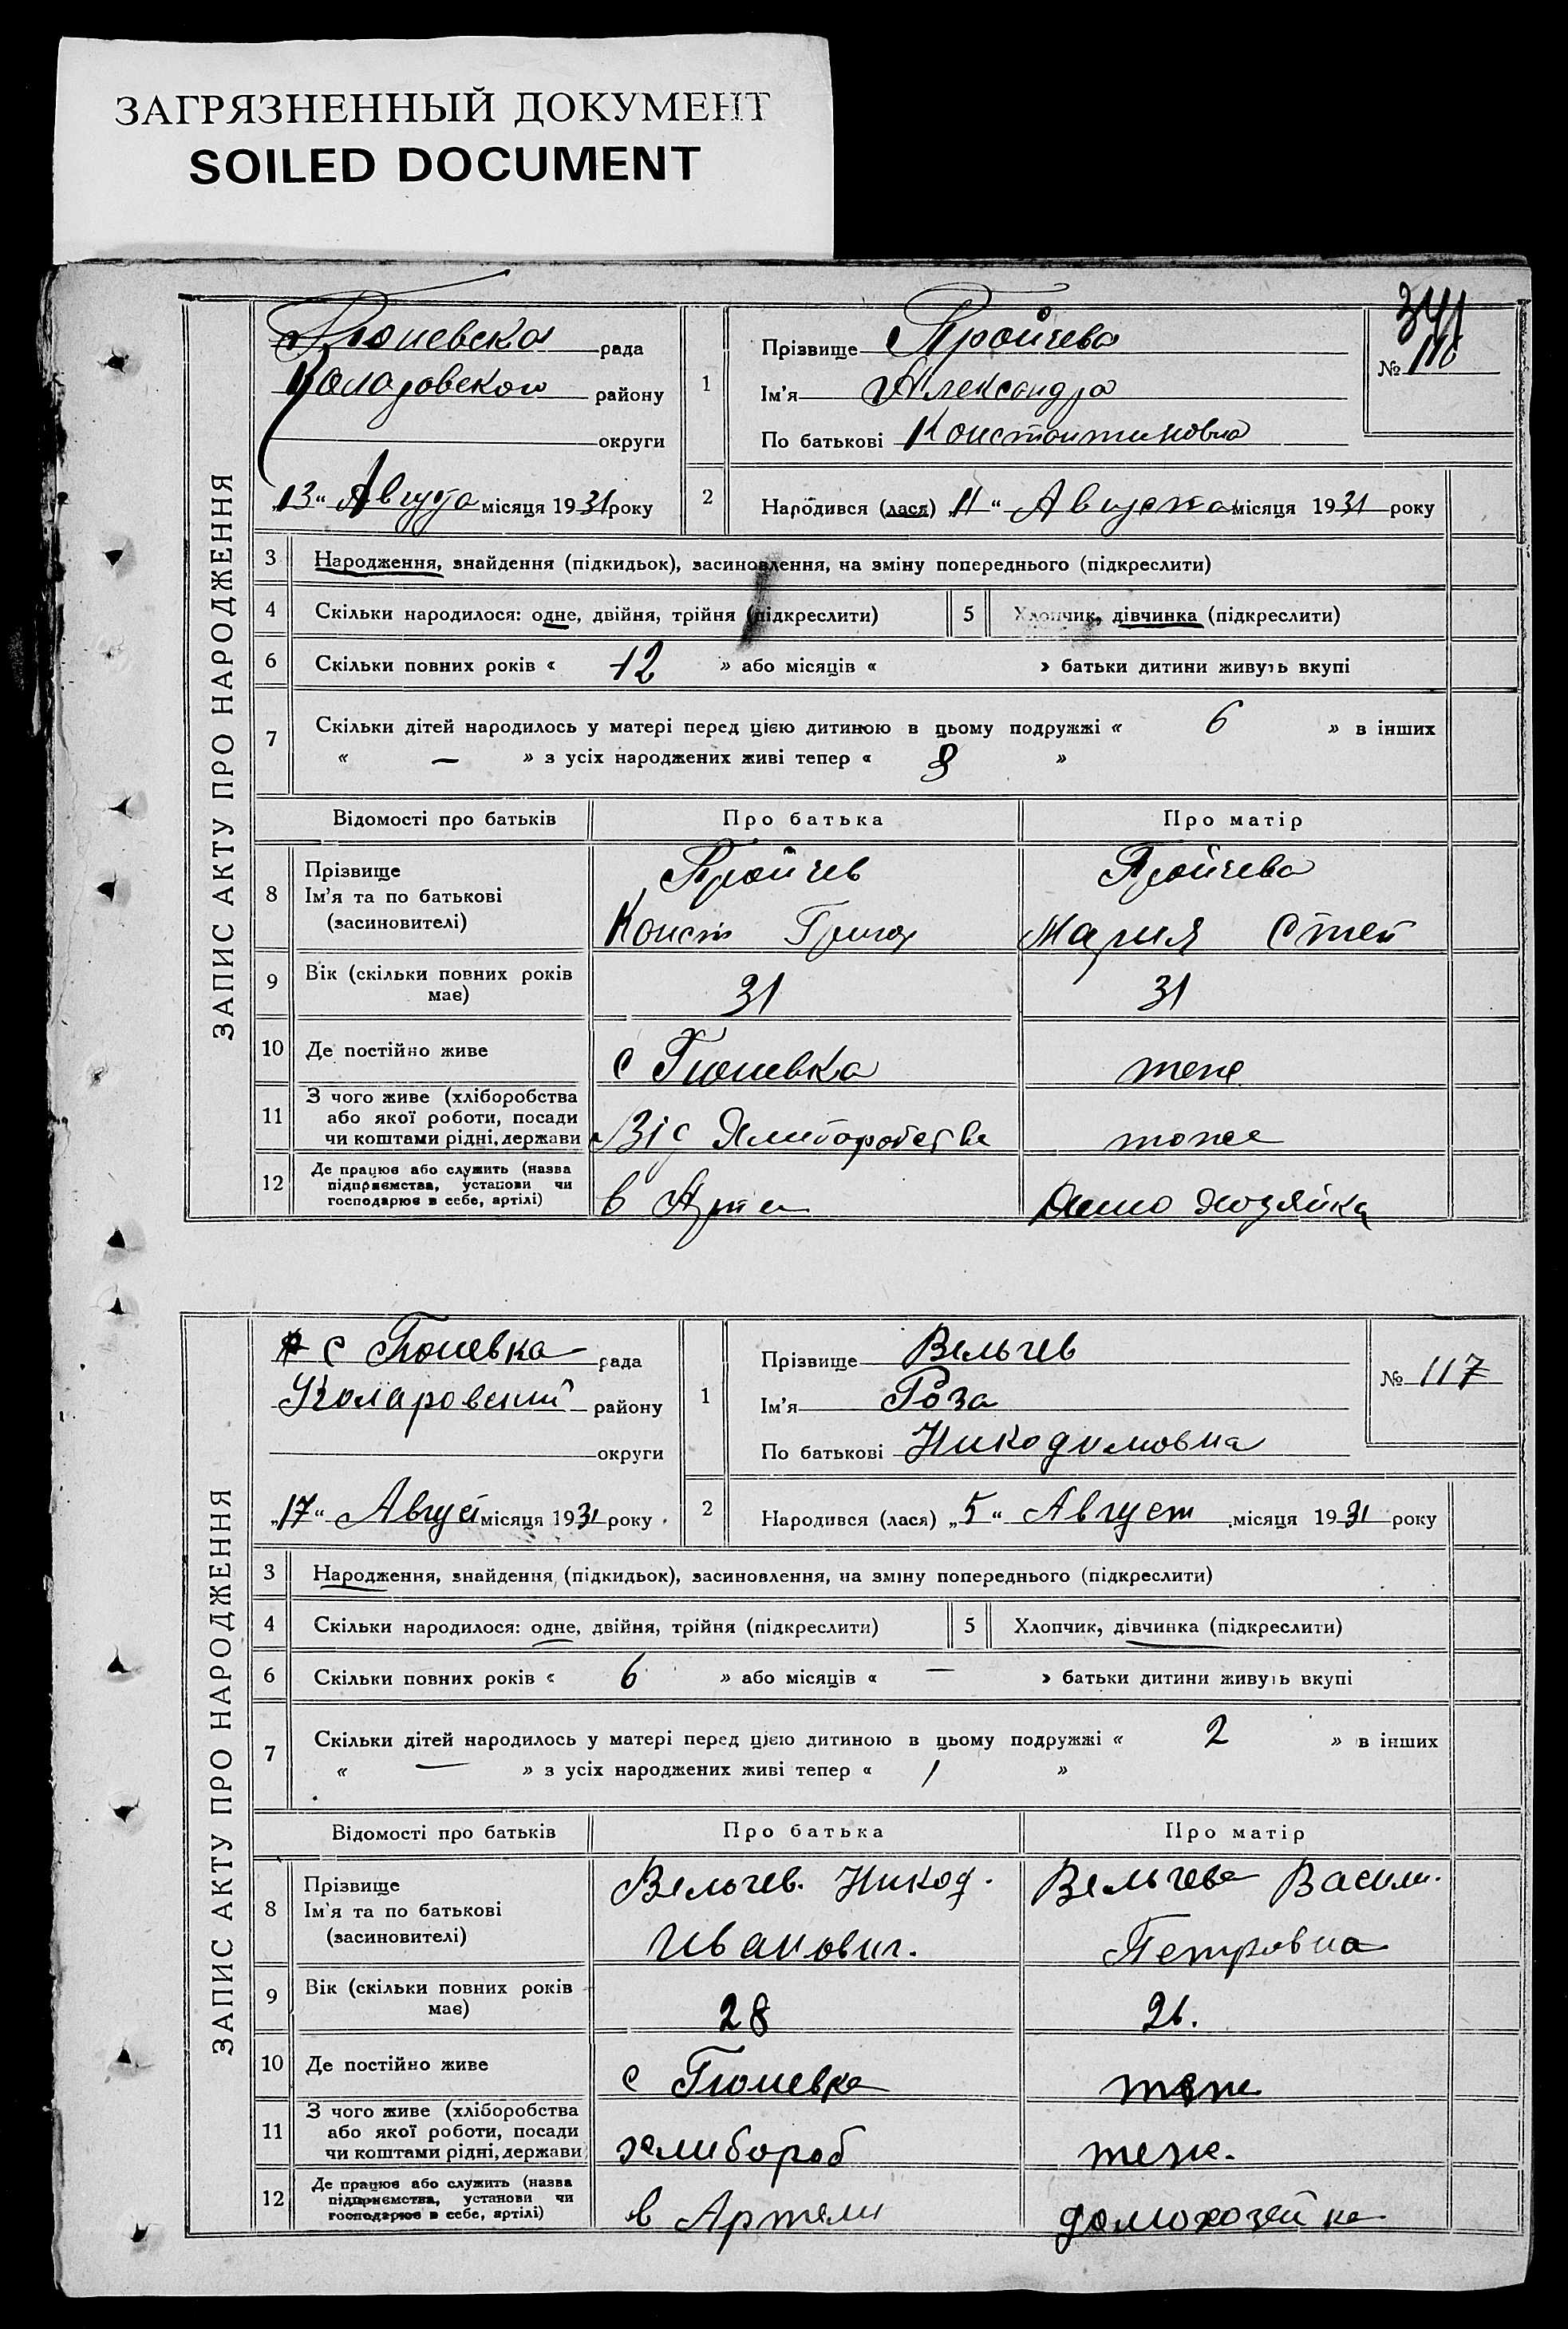 ЗАГРЯЗНЕННЫЙ ДОКУМЕНТ
SOILED DOCUMENT
341
ЗАПИС АКТУ ПРО НАРОДЖЕННЯ
Гюневска рада
Коларовского району
округи
„13“ Августа місяця 1931 року
1
Прізвище Тройчева
Ім’я Александра
По батькові Константиновна
№ 116
2 Народився (лася) „11“ Августа місяця 1931 року
3 Народження, знайдення (підкидьок), засиновлення, на зміну попереднього (підкреслити)
4 Скільки народилося: одне, двійня, трійня (підкреслити) 5 Хлопчик, дівчинка (підкреслити)
6 Скільки повних років « 12 » або місяців « » батьки дитини живуть вкупі
7 Скільки дітей народилось у матері перед цією дитиною в цьому подружжі « 6 » в інших
« — » з усіх народжених живі тепер « »
Відомості про батьків Про батька Про матір
8 Прізвище Тройчев Тройчева
Ім’я та по батькові
(засиновителі) Конст Григор Мария Степ
9 Вік (скільки повних років
має) 31 31
10 Де постійно живе с Гюневка
11 З чого живе (хліборобства
або якої роботи, посади
чи коштами рідні, держави Від тоже
12 Де працює або служить (назва
підприємства, установи чи
господарює в себе, артілі) в Арте
ЗАПИС АКТУ ПРО НАРОДЖЕННЯ
с Гюневка рада
Коларовский району
округи
„17“ Август місяця 1931 року
1
Прізвище Вельчев
Ім’я Роза
По батькові Никодимовна
№ 117
2 Народився (лася) „5“ Август місяця 1931 року
3 Народження, знайдення (підкидьок), засиновлення, на зміну попереднього (підкреслити)
4 Скільки народилося: одне, двійня, трійня (підкреслити) 5 Хлопчик, дівчинка (підкреслити)
6 Скільки повних років « 6 » або місяців « — » батьки дитини живуть вкупі
7 Скільки дітей народилось у матері перед цією дитиною в цьому подружжі « 2 » в інших
« — » з усіх народжених живі тепер « 1 »
Відомості про батьків Про батька Про матір
8 Прізвище Вельчев. Никод. Вельчева Васили.
Ім’я та по батькові
(засиновителі) Иванович. Петровна
9 Вік (скільки повних років
має) 28 26.
10 Де постійно живе с Гюневка
11 З чого живе (хліборобства
або якої роботи, посади
чи коштами рідні, держави хлибороб теж.
12 Де працює або служить (назва
підприємства, установи чи
господарює в себе, артілі) в Артели домохозейка